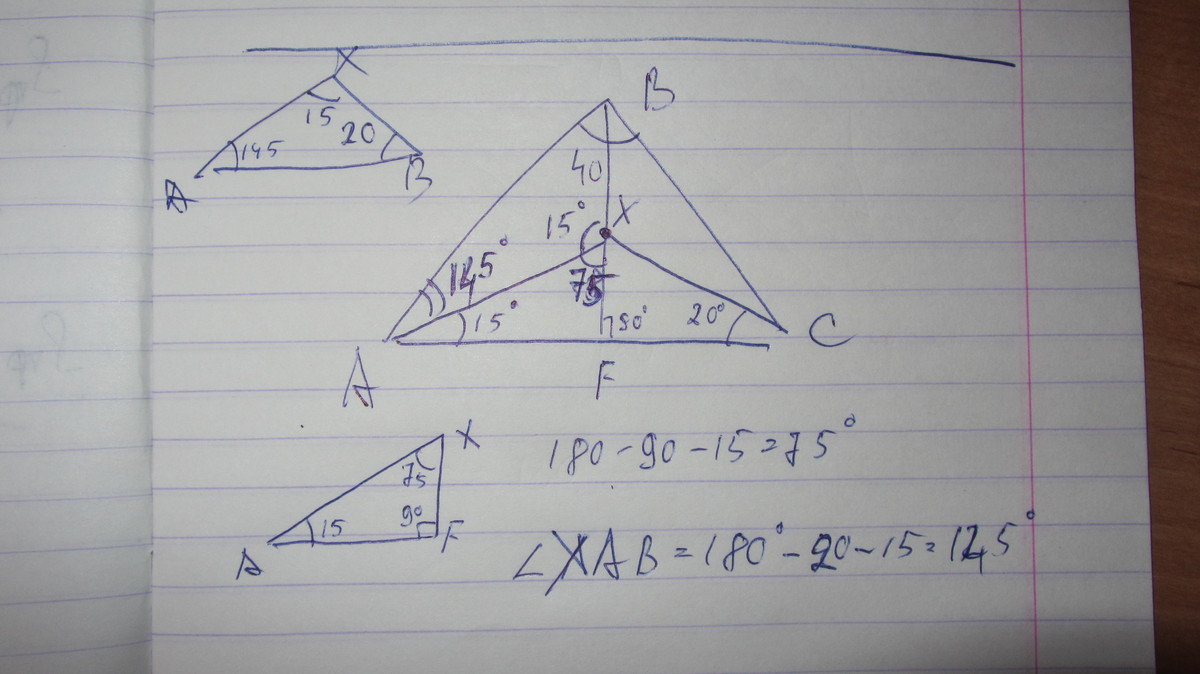 X
15
20
145
A
B
B
40
15°
X
145°
75
15°
90°
20°
A
F
C
X
75
15
90
A
F
180-90-15=75°
∠XAB=180°-20-15=145°